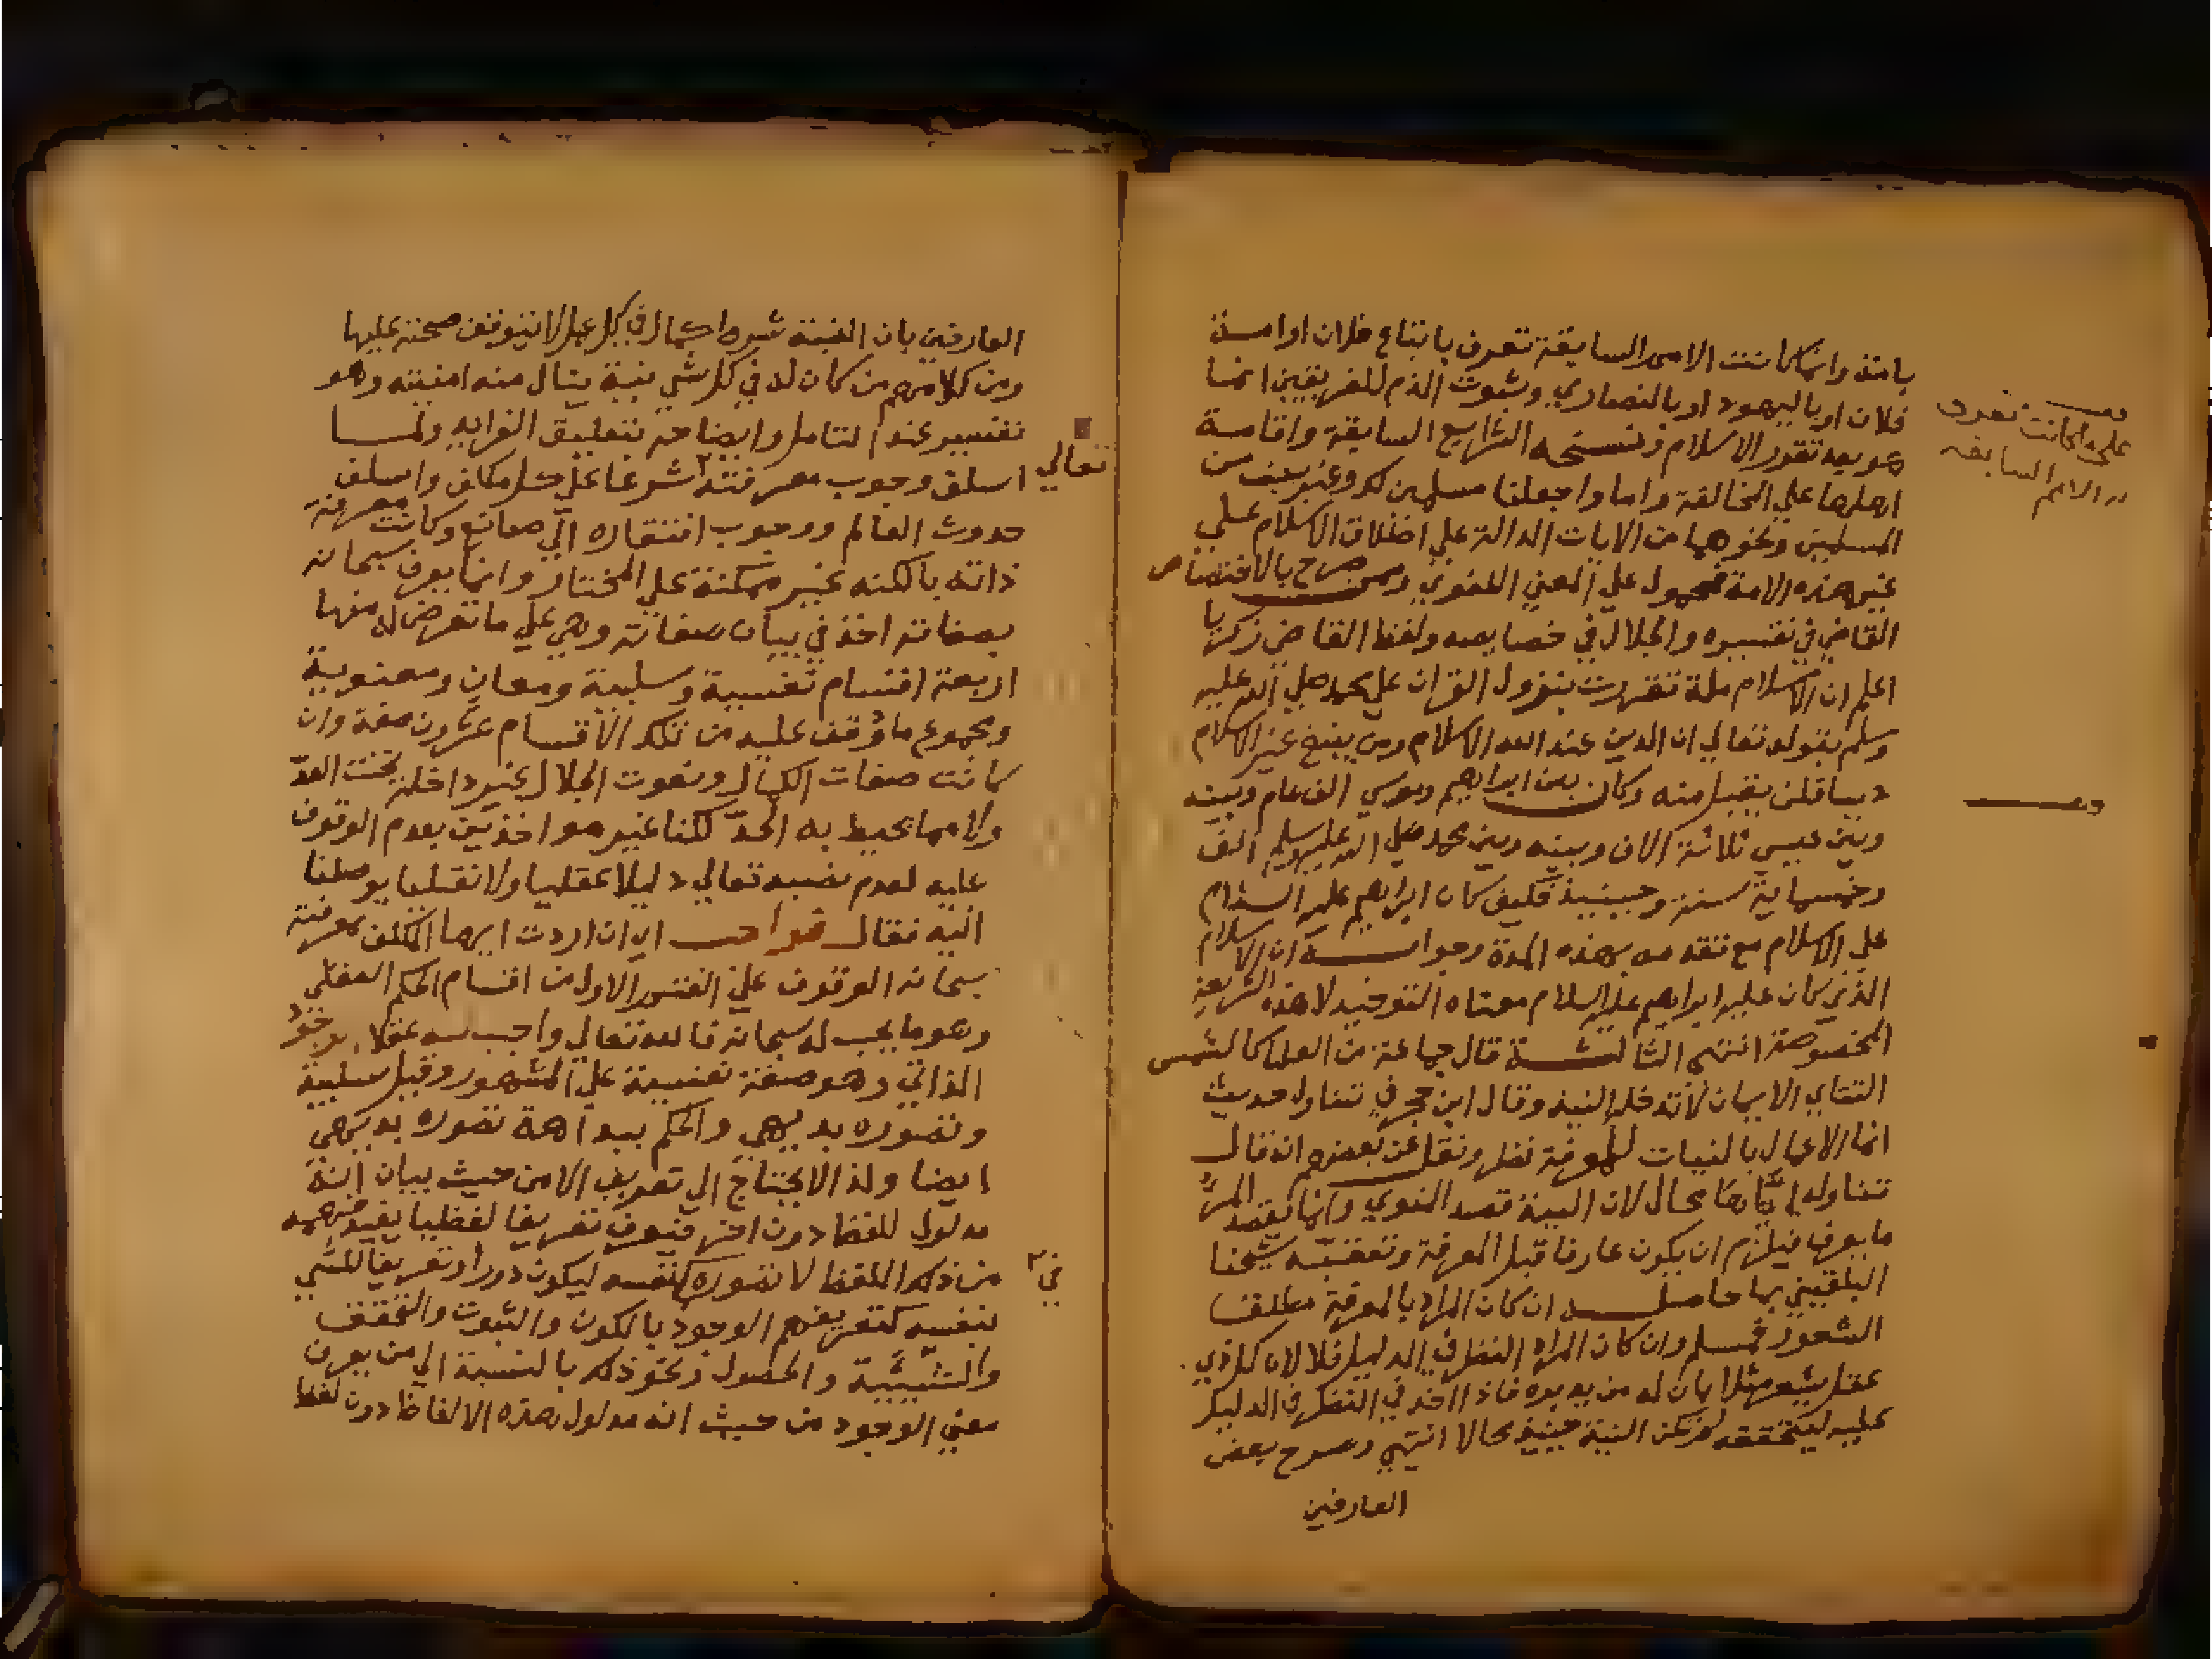 بامته وانما كانت الامم السابقة تعرف باتباع فلان او امة
فلان او باليهود او بالنصاري وثبوت الذم للفريقين انما
هو بعد تقرر الاسلام ونسخه الشرايع السابقة واقامة
اهلها علي المخالفة واما واجعلنا مسلمين لك وغير بيت من
المسلمين ونحوهما من الايات الدالة علي اطلاق الاسلام علي
غير هذه الامة فمحمول علي المعني اللغوي وممن صرح بالاختصاص
القاضي في تفسيره والجلال في خصايصه ولفظ القاضي زكريا
اعلم ان الاسلام ملة تقررت بنزول القران علي محمد صلي الله عليه
وسلم بقوله تعالي ان الدين عند الله الاسلام ومن يبتغ غير الاسلام
دينا فلن يقبل منه وكان بين ابراهيم وموسي الف عام وبينه
وبين عيسي ثلاثة الاف وبينه وبين محمد صلي الله عليه وسلم الف
وخمسماية سنة وحينيذ فكيف كان ابراهيم عليه السلام
علي الاسلام مع تقدمه بهذه المدة وجوابه ان الاسلام
الذي كان عليه ابراهيم عليه السلام معناه التوحيد لا هذه الشريعة
المخصوصة انتهي الثالثة قال جماعة من العلما كالشمس
التتاي الايمان لا تدخله النية وقال ابن حجر في تناول حديث
انما الاعمال بالنيات للمعرفة نظر ونقل عن بعضهم انه قال
تناوله لها محال لان النية قصد المنوي وانما يقصد المرء
ما يعرف فيلزم ان يكون عارفا قبل المعرفة وتعقبه شيخنا
البلقيني بما حاصله ان كان المراد بالمعرفة مطلق
الشعور فمسلم وان كان المراد النظر في الدليل فلا لان كل ذي
عقل يشعر مثلا بان له من يدبره فاذا اخذ في النظر في الدليل
عليه ليتحققه لم تكن النية حينيذ محالا انتهي وصرح بعض
العارفين
علي وانما كانت تعرف
الامم السابقه
العارفين بان النية شرط كمال في كل عمل لا تتوقف صحته عليها
ومن كلامهم من كان له في كل شي نية ينال منه امنيته وهو
نفيس عند التامل وايضاحه بتعليق الفرايد ولما
اسلف وجوب معرفته شرعا علي كل مكلف واسلف
تعالي
حدوث العالم ووجوب افتقاره الي صانع وكانت معرفة
ذاته بالكنه غير ممكنة علي المختار وانما يعرف سبحانه
بصفاته اخذ في بيان صفاته وهي علي ما تعرض له منها
اربعة اقسام نفسية وسلبية ومعان ومعنوية
ومجموع ما وقف عليه من تلك الاقسام عشرون صفة وان
كانت صفات الكمال ونعوت الجلال غير داخلة تحت العد
ولا مما يحيط به الحد لكنا غير مواخذين بعدم الوقوف
عليه لعدم نصبه تعالي دليلا عقليا ولا نقليا يوصلنا
اليه فقال فواجب اي ان اردت ايها المكلف معرفته
سبحانه الوقوف علي القسم الاول من اقسام الحكم العقلي
وهو ما يجب له سبحانه فالله تعالي واجب له عقلا الوجود
الذاتي وهو صفة نفسية علي المشهور وقيل سلبية
وتصوره بديهي والحكم ببداهة تصوره بديهي
ايضا ولذا لا يحتاج الي تعريف الا من حيث بيان انه
مدلول للفظ دون اخر فيعرف تعريفا لفظيا يفيد فهمه
من ذلك اللفظ لا تصوره نفسه ليكون دورا وتعريفا للشي
في
بنفسه كتعريفهم الوجود بالكون والثبوت والتحقق
والشيئية والحصول ونحو ذلك بالنسبة الي من يعرف
معني الوجود من حيث انه مدلول هذه الالفاظ دون لفظ